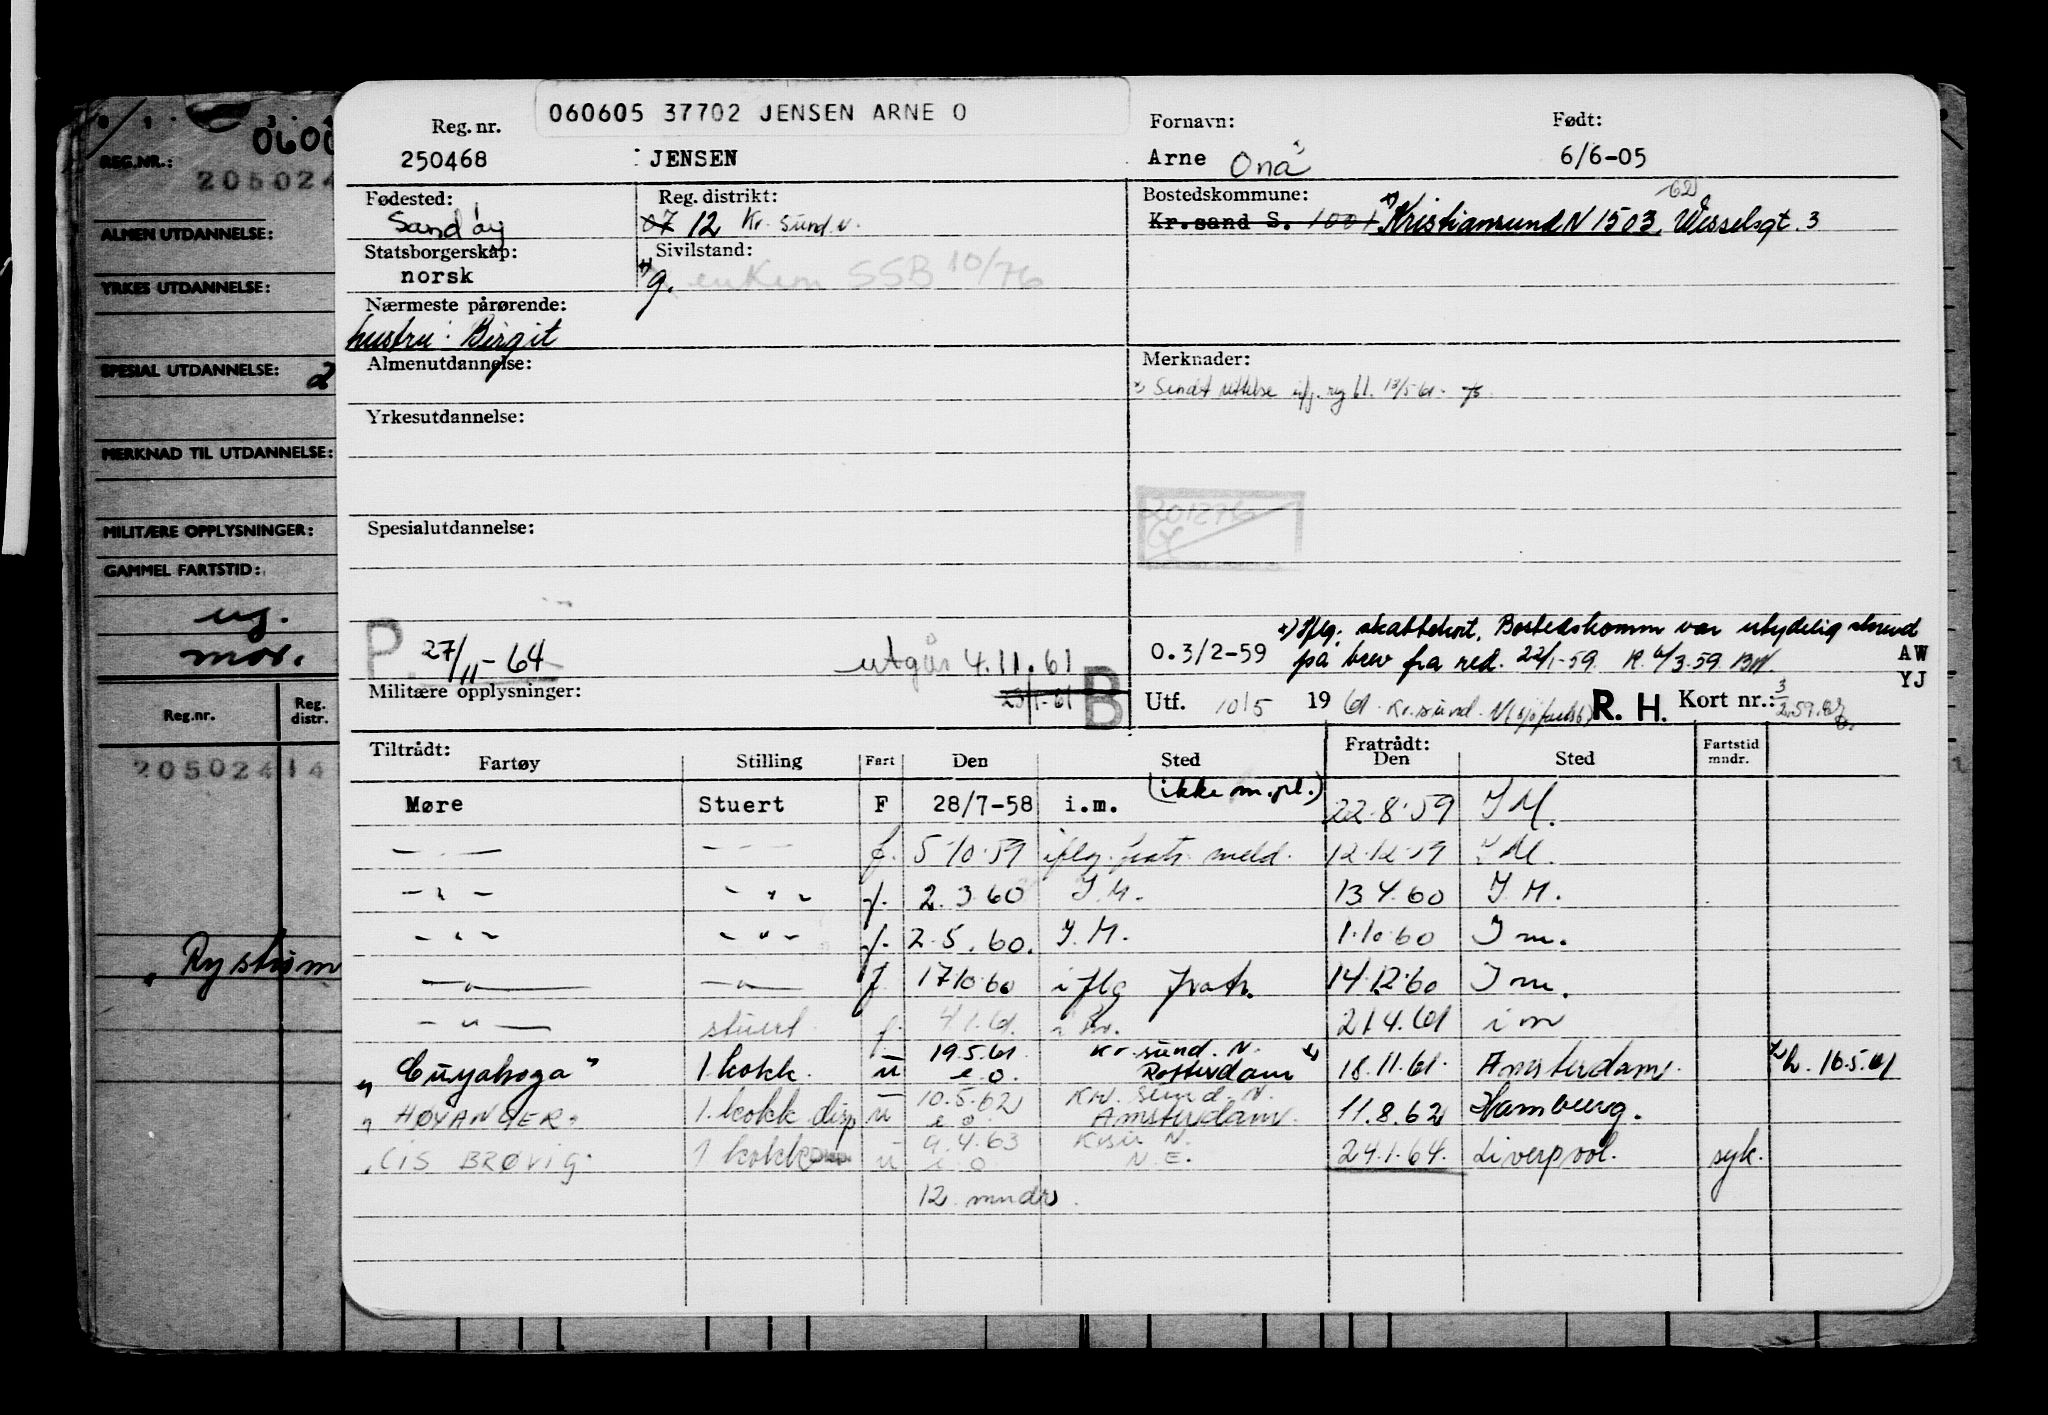 060605 37702 JENSEN ARNE O
Reg. nr. Fornavn: Født:
250468 JENSEN Arne Ona 6/6-05
Fødested: Reg. distrikt: Bostedskommune:
Sandøy 07 12 Kr. sund. N. Kr.sand S. 1001 Kristiansund N 1503, Wesselsgt. 3
62
Statsborgerskap: Sivilstand:
norsk g. enkem SSB 10/76
Nærmeste pårørende:
hustru: Birgit
Almenutdannelse: Merknader:
Sendt rettelse 13/5-61
Yrkesutdannelse:
201276
Spesialutdannelse:
P. 27/11-64 utgår 4.11.61
O.3/2-59 x) Iflg. skattekort, Bostedskomm var utydelig skrevet
på brev fra red. 22/1-59. AW
YJ
Militære opplysninger: B Utf. 10/5 1961 Kr.sund. N R. H. Kort nr.:
Tiltrådt: Fratrådt: Fartstid
Fartøy Stilling Fart Den Sted Den Sted mndr.
(ikke m.pl.)
Møre Stuert F 28/7-58 i.m. 22.8.59 I M.
— " — — " — f. 5.10.59 iflg. fratr. meld. 12.12.59 I M.
— " — — " — f. 2.3.60 I. M. 13.4.60 I. M.
— " — — " — f. 2.5.60. I. M. 1.10.60 I m.
— " — — " — f 17.10.60 iflg fratr. 14.12.60 I m.
— " — stuert f. 4.1.61. i m. 21.4.61 i m
19.5.61 Kr.sund. N.
"Cuyahoga" 1. kokk. u e.o. Rotterdam 18.11.61. Amsterdam. h. 16.5.61
10.5.62 Kr. sund. N.
"HØYANGER" 1. kokk disp u e.o. Amsterdam. 11.8.62 Hamburg.
9.4.63 Krsu N.
"CIS BRØVIG" 1 kokk u e.o N.E. 24.1.64. Liverpool. syk.
12 mndr.
060
REG.NR.:
205024
ALMEN UTDANNELSE:
YRKES UTDANNELSE:
SPESIAL UTDANNELSE: 2
MERKNAD TIL UTDANNELSE:
MILITÆRE OPPLYSNINGER:
GAMMEL FARTSTID:
ug.
mor.
Reg.nr. Reg. distr.
205024 14
"Rystrøm